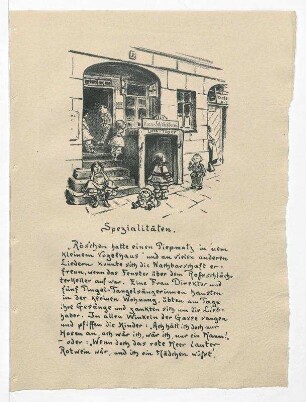 Spezialitäten.
„Röschen hatte einen Piepmatz in dem
kleinem Vogelhaus" und an vielen anderen
Liedern konnte sich die Nachbarschaft er-
freuen, wenn das Fenster über dem Roßschläch-
terkeller auf war. Eine Frau Direktor und
fünf Tingel-Tangelsängerinnen hausten
in der kleinen Wohnung, übten am Tage
ihre Gesänge und zankten sich um die Lieb-
haber. In allen Winkeln der Gasse sangen
und pfiffen die Kinder: „Ach hätt ich doch nur
Hosen an, ach wär ich, wär ich, nur ein Mann!"
- oder „Wenn doch das rote Meer lauter
Rotwein wär, und ich ein Rädchen wüßt"